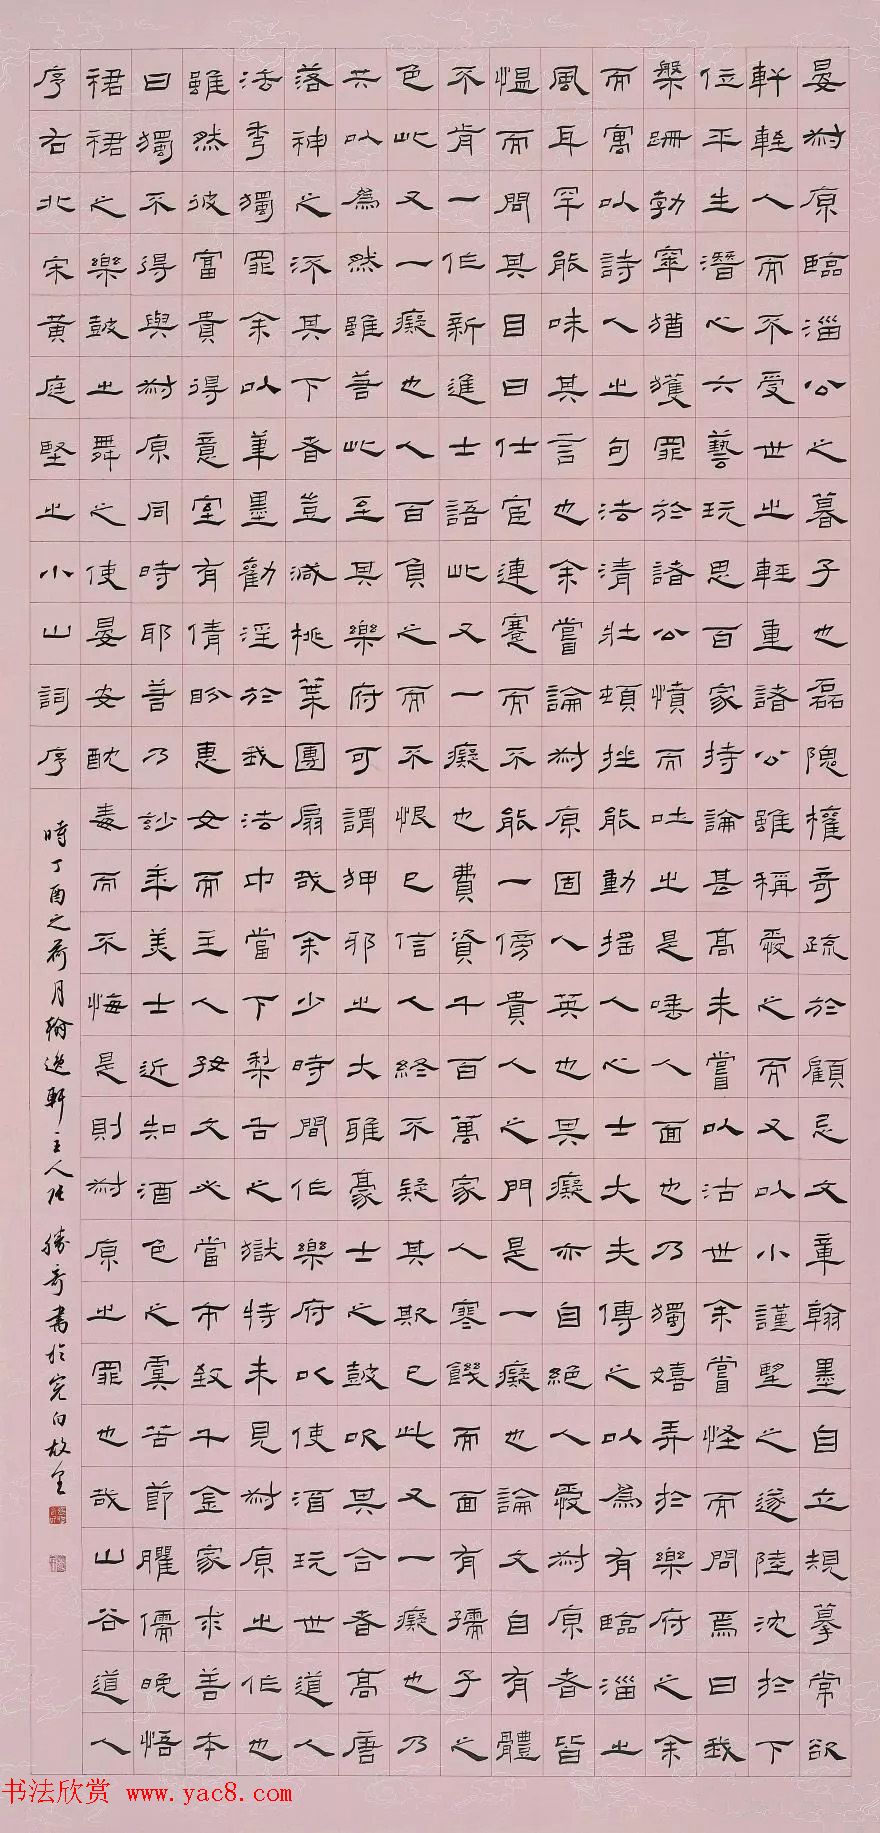 晏叔原臨淄公之暮子也磊隗權奇疏於顧忌文章翰墨自立規摹常欲
軒輊人而不受世之輕重諸公雖稱愛之而又以小謹望之遂陸沈於下
位平生潛心六藝玩思百家持論甚高未嘗以沽世余嘗怪而問焉曰我
槃跚勃窣猶獲罪於諸公憤而吐之是唾人面也乃獨嬉弄於樂府之余
而寓以詩人之句法清壯頓挫能動搖人心士大夫傳之以為有臨淄之
風耳罕能味其言也余嘗論叔原固人英也其癡亦自絕人愛叔原者皆
慍而問其目曰仕宦連蹇而不能一傍貴人之門是一癡也論文自有體
不肯一作新進士語此又一癡也費資千百萬家人寒饑而面有孺子之
色此又一癡也人百負之而不恨已信人終不疑其欺已此又一癡也乃
共以為然雖若此至其樂府可謂狎邪之大雅豪士之鼓吹其合者高唐
落神之流其下者豈減桃葉團扇哉余少時間作樂府以使酒玩世道人
法秀獨罪余以筆墨勸淫於我法中當下犁舌之獄特未見叔原之作也
雖然彼富貴得意室有倩盼惠女而主人好文必當市致千金家求善本
曰獨不得與叔原同時耶若乃妙年美士近知酒色之虞苦節臞儒晚悟
裙裙之樂鼓之舞之使晏安酖毒而不悔是則叔原之罪也哉山谷道人
序右北宋黃庭堅之小山詞序
時丁酉之荷月翰逸軒主人張勝奇書於白故里
书法欣赏 www.yac8.com